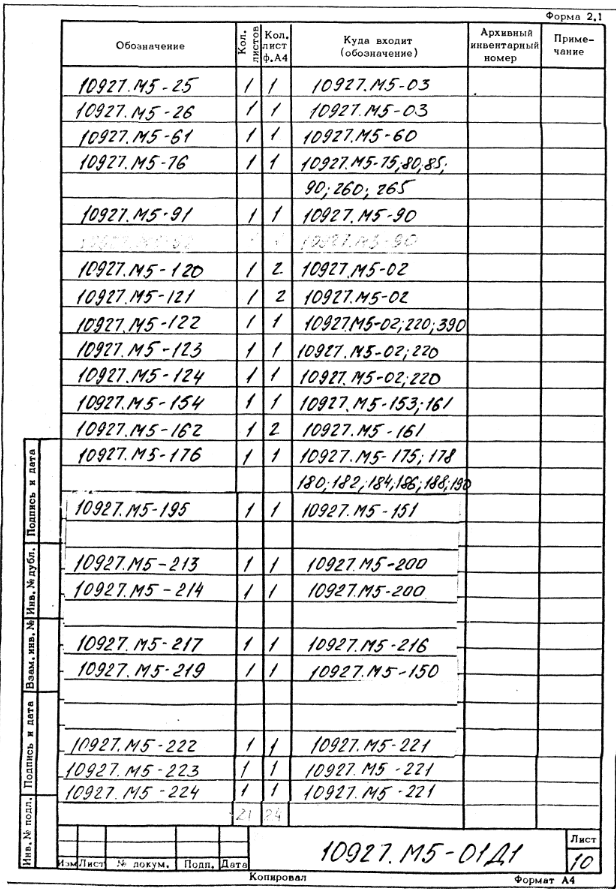 Форма 2.1
Обозначение Кол. листов Кол. лист ф.А4 Куда входит (обозначение) Архивный инвентарный номер Примечание
10927.М5-25 1 1 10927.М5-03
10927.М5-26 1 1 10927.М5-03
10927.М5-61 1 1 10927.М5-60
10927.М5-76 1 1 10927.М5-75,80,85;
90; 260; 265
10927.М5-91 1 1 10927.М5-90
10927.М5-90
10927.М5-120 1 2 10927.М5-02
10927.М5-121 1 2 10927.М5-02
10927.М5-122 1 1 10927.М5-02;220;390
10927.М5-123 1 1 10927.М5-02;220
10927.М5-124 1 1 10927.М5-02;220
10927.М5-154 1 1 10927.М5-153;161
10927.М5-162 1 2 10927.М5-161
10927.М5-176 1 1 10927.М5-175; 178
180;182;184;186;188;190
10927.М5-195 1 1 10927.М5-151
10927.М5-213 1 1 10927.М5-200
10927.М5-214 1 1 10927.М5-200
10927.М5-217 1 1 10927.М5-216
10927.М5-219 1 1 10927.М5-150
10927.М5-222 1 1 10927.М5-221
10927.М5-223 1 1 10927.М5-221
10927.М5-224 1 1 10927.М5-221
21 24
Подпись и дата
Инв. № дубл.
Взам. инв. №
Подпись и дата
Инв. № подл.
Изм Лист № докум. Подп. Дата
10927.М5-01Д1
Лист
10
Копировал Формат А4